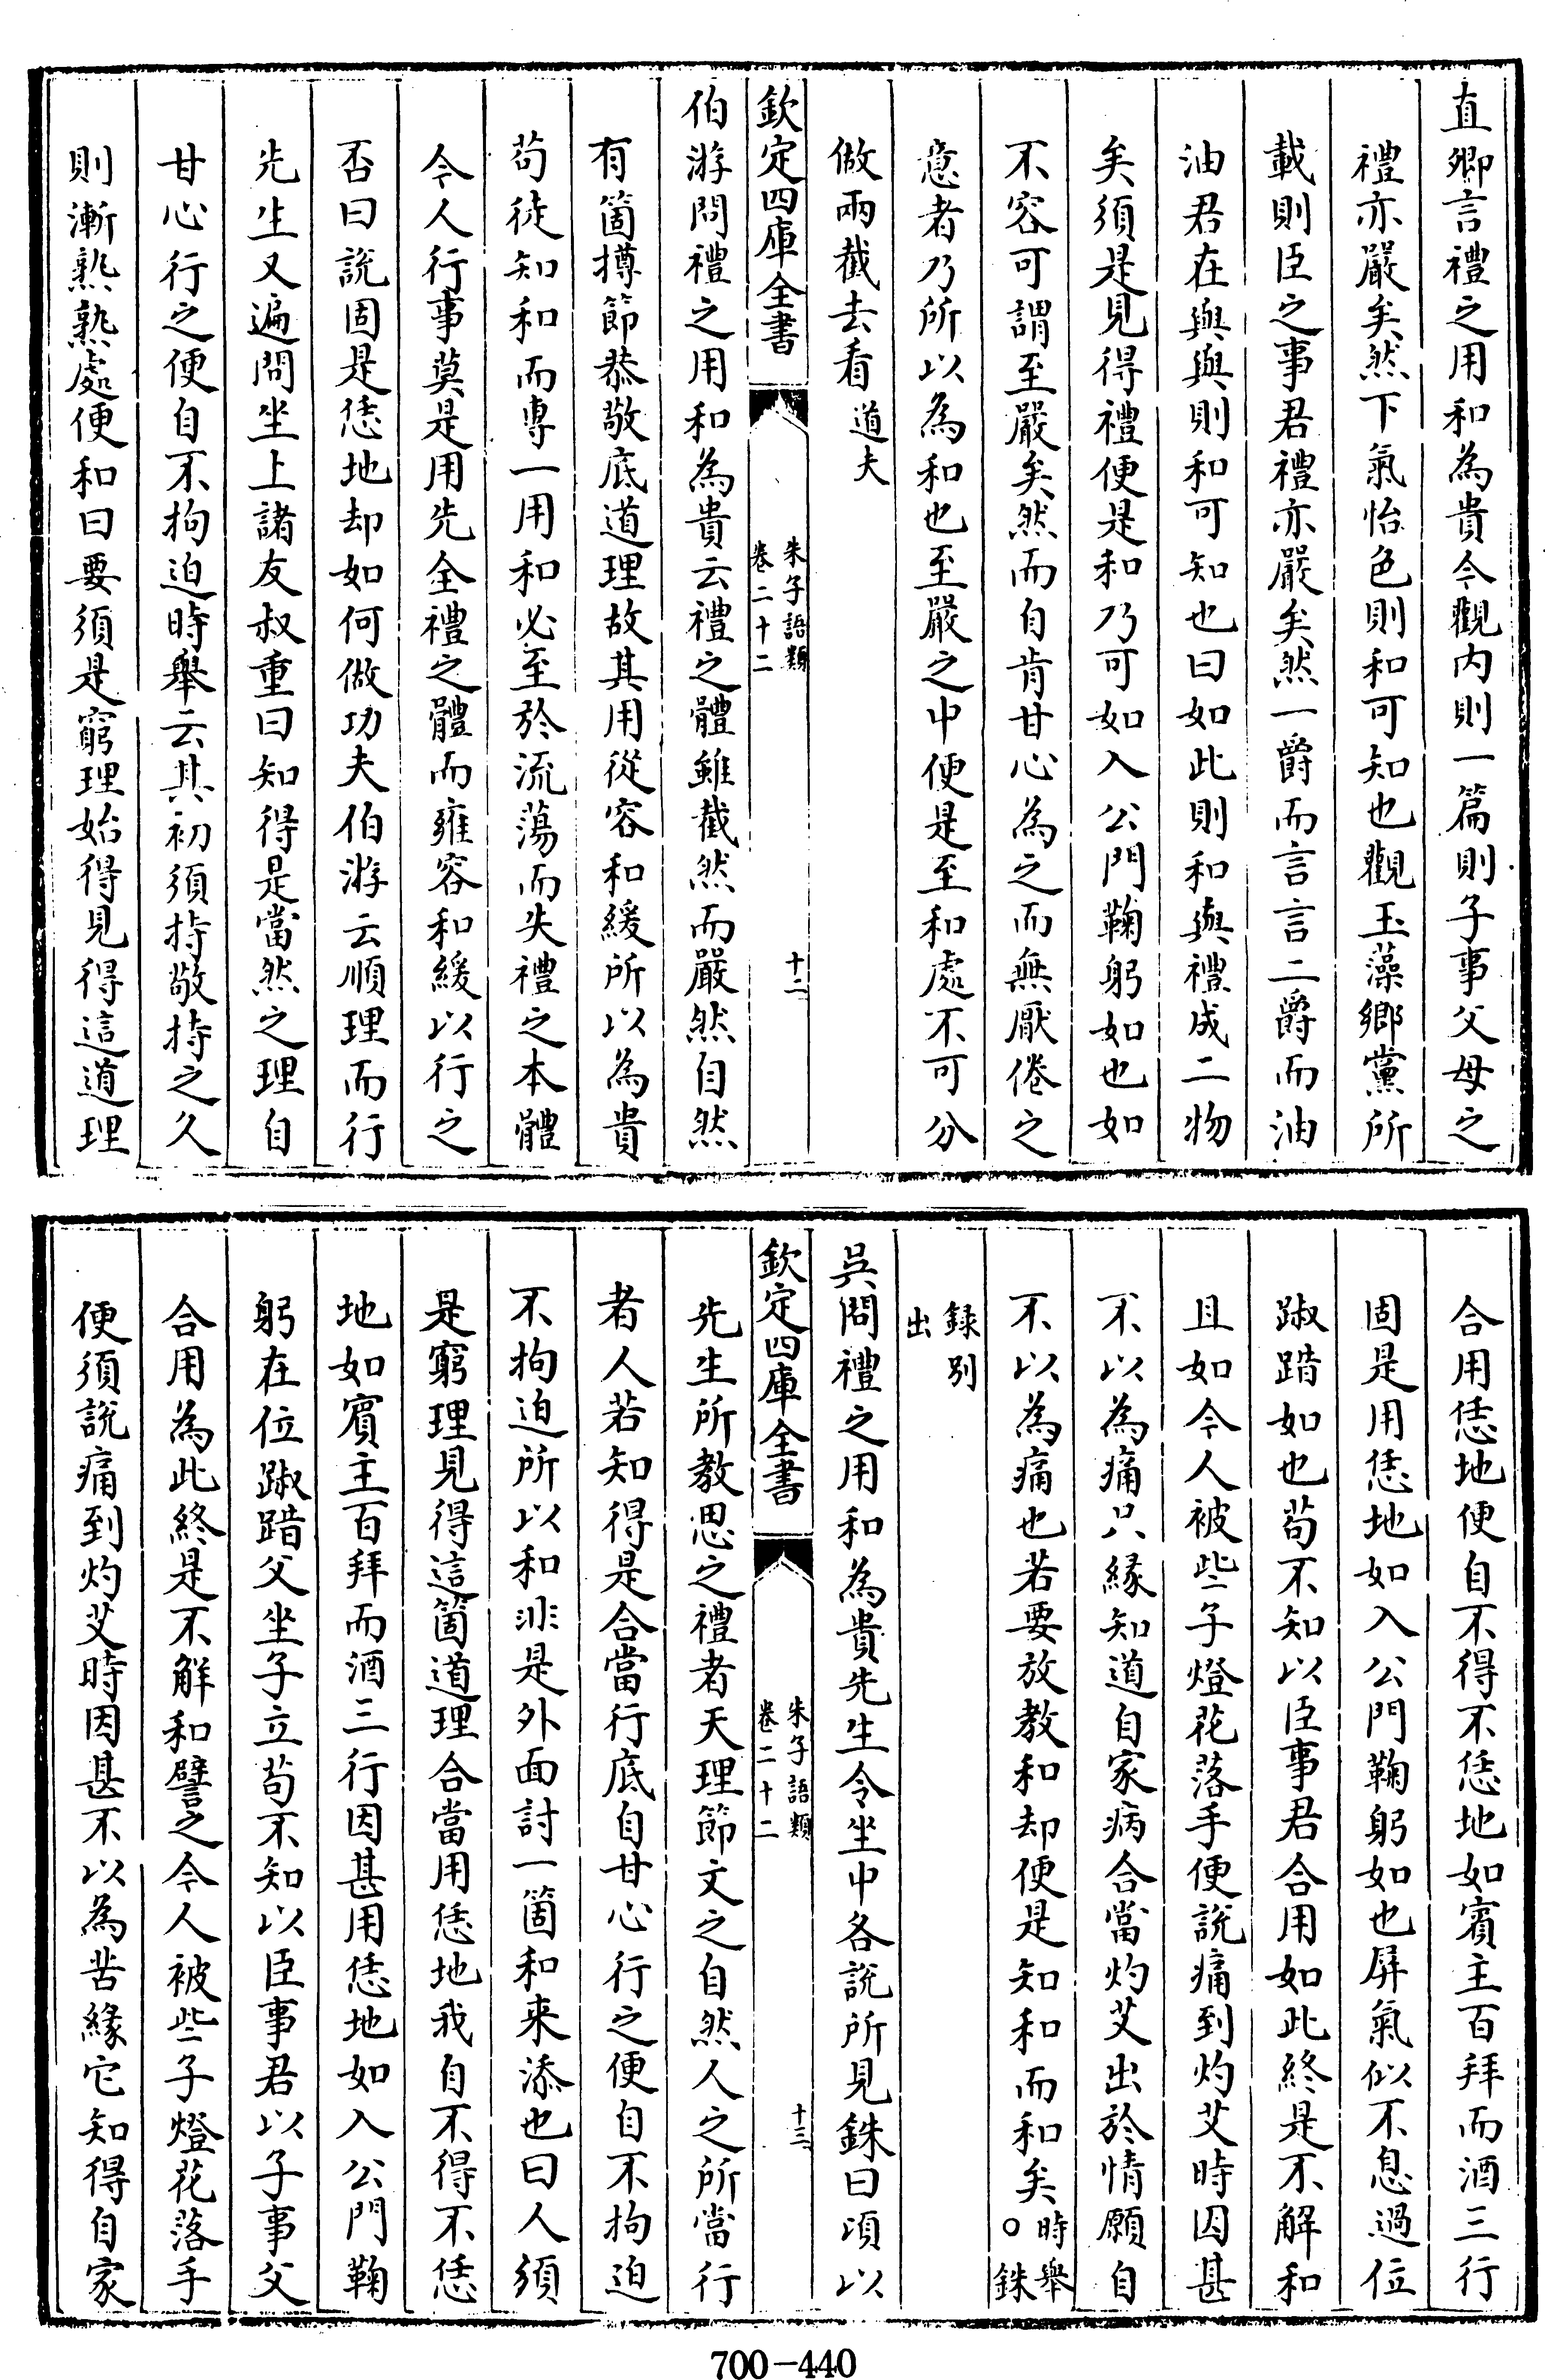 直卿言禮之用和為貴今觀内則一篇則子事父母之
禮亦嚴矣然下氣怡色則和可知也觀玉藻鄉黨所
載則臣之事君禮亦嚴矣然一爵而言言二爵而油
油君在與與則和可知也曰如此則和與禮成二物
矣須是見得禮便是和乃可如入公門鞠躬如也如
不容可謂至嚴矣然而自肯甘心為之而無厭倦之
意者乃所以為和也至嚴之中便是至和處不可分
做兩截去看道夫
欽定四庫全書
朱子語類
卷二十二
十二
伯游問禮之用和為貴云禮之體雖截然而嚴然自然
有箇撙節恭敬底道理故其用從容和緩所以為貴
苟徒知和而專一用和必至於流蕩而失禮之本體
今人行事莫是用先全禮之體而雍容和緩以行之
否曰說固是恁地却如何做功夫伯游云順理而行
先生又遍問坐上諸友叔重曰知得是當然之理自
甘心行之便自不拘迫時舉云其初須持敬持之久
則漸熟熟處便和曰要須是窮理始得見得這道理
合用恁地便自不得不恁地如賓主百拜而酒三行
固是用恁地如入公門鞠躬如也屏氣似不息過位
踧踖如也苟不知以臣事君合用如此終是不解和
且如今人被些子燈花落手便說痛到灼艾時因甚
不以為痛只緣知道自家病合當灼艾出於情願自
不以為痛也若要放教和却便是知和而和矣時舉
○銖
錄別
出
吳問禮之用和為貴先生令坐中各說所見銖曰頃以
欽定四庫全書
朱子語類
卷二十二
十三
先生所教思之禮者天理節文之自然人之所當行
者人若知得是合當行底自甘心行之便自不拘迫
不拘迫所以和非是外面討一箇和来添也曰人須
是窮理見得這箇道理合當用恁地我自不得不恁
地如賓主百拜而酒三行因甚用恁地如入公門鞠
躬在位踧踖父坐子立苟不知以臣事君以子事父
合用為此終是不解和譬之今人被些子燈花落手
便須說痛到灼艾時因甚不以為苦緣它知得自家
700-440